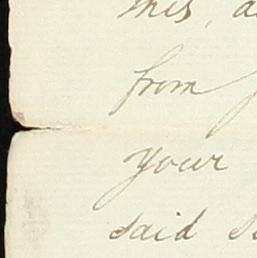 this, a
from
your
said s